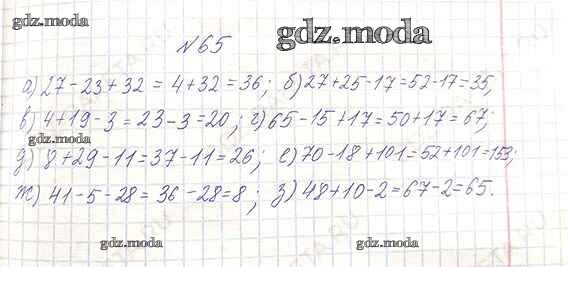 gdz.moda
gdz.moda
№65
а) 27 - 23 + 32 = 4 + 32 = 36; б) 27 + 25 - 17 = 52 - 17 = 35;
в) 4 + 19 - 3 = 23 - 3 = 20; г) 65 - 15 + 17 = 50 + 17 = 67;
gdz.moda
д) 8 + 29 - 11 = 37 - 11 = 26; е) 70 - 18 + 101 = 52 + 101 = 153;
ж) 41 - 5 - 28 = 36 - 28 = 8; з) 48 + 10 - 2 = 67 - 2 = 65.
gdz.moda
gdz.moda